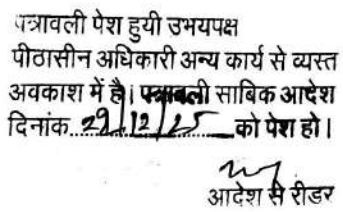 पत्रावली पेश हुयी उभयपक्ष
पीठासीन अधिकारी अन्य कार्य से व्यस्त
अवकाश में है। पत्रावली साबिक आदेश
दिनांक..29/12/25......को पेश हो।
आदेश से रीडर